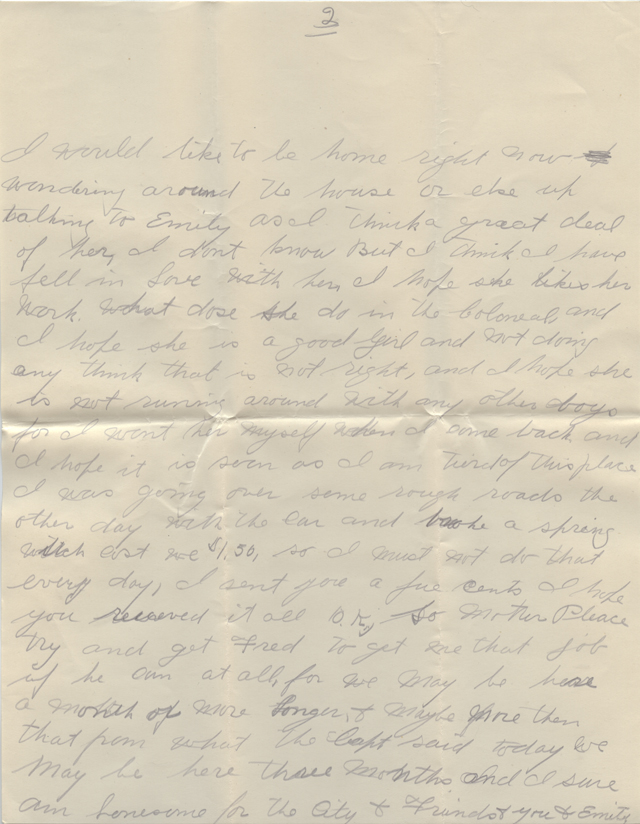 2
I would like to be home right now
wondering around the house or else up
talking to Emily as I think a great deal
of her, I dont know But I think I have
fell in Love with her, I hope she likes her
work. What dose she do in the Coloneal, and
I hope she is a good Girl and not doing
any think that is not right, and I hope she
is not running around with any other boys
for I want her myself when I come back, and
I hope it is soon as I am tired of this place
I was going over some rough roads the
other day with the car and broke a spring
witch cost me $1.50, so I must not do that
every day, I sent you a fue cents I hope
you received it all O.K, So Mother Pleace
try and get Fred to get me that job
if he can at all, for we may be here
a month or more longer, & maybe more then
that from what the Capt said today we
may be here three months and I sure
am lonesome for the City & Friends & you & Emily